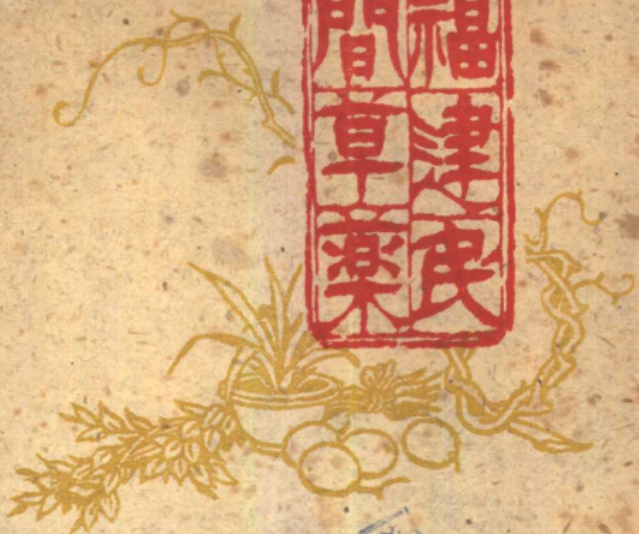 福建民
間草薬